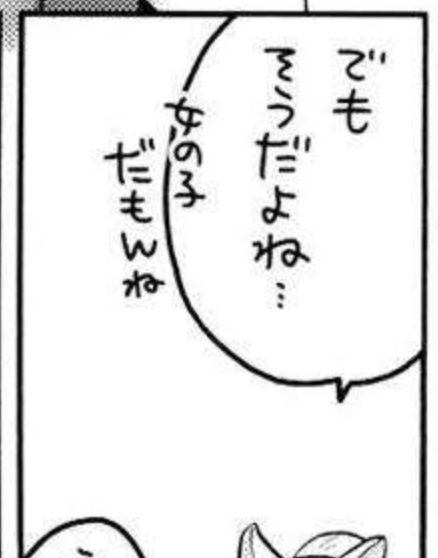 でも
そうだよね…
女の子
だもんね